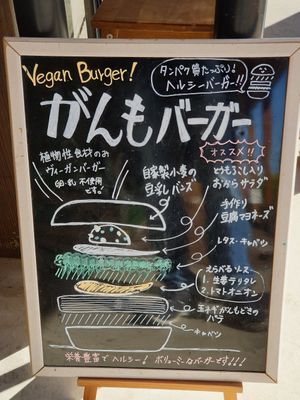 Vegan Burger!
タンパク質たっぷり!
ヘルシーバーガー!!
がんもバーガー
植物性食材のみ
ヴィーガンバーガー
卵・乳 不使用
です
自家製小麦の
豆乳バンズ
オススメ!!
ともろこし入り
おからサラダ
手作り
豆腐マヨネーズ
レタス・キャベツ
えらべるソース
1. 生姜テリタレ
2. トマトオニオン
玉ネギがんもどきの
パテ
キャベツ
栄養豊富でヘルシー! ボリューミーなバーガーです!!!